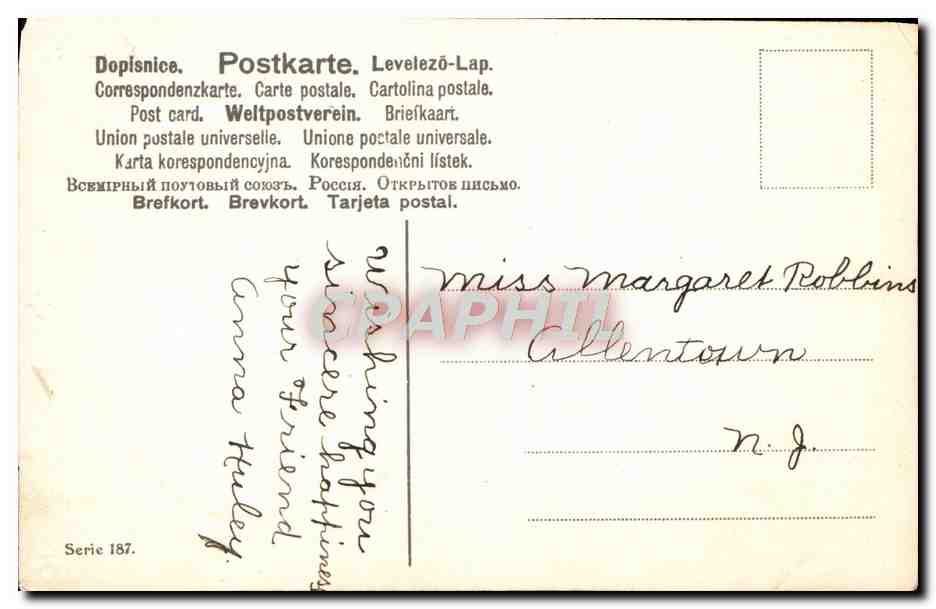 Dopisnice. Postkarte. Levelező-Lap.
Correspondenzkarte. Carte postale. Cartolina postale.
Post card. Weltpostverein. Briefkaart.
Union postale universelle. Unione postale universale.
Karta korespondencyjna. Korespondenčni lístek.
Всемірный поутовый союзъ. Россія. Открытое письмо.
Brefkort. Brevkort. Tarjeta postal.
Wishing you
sincere happiness
your Friend
Anna Huley.
Miss Margaret Robbins
Allentown
N. J.
CPAPHIL
Serie 187.